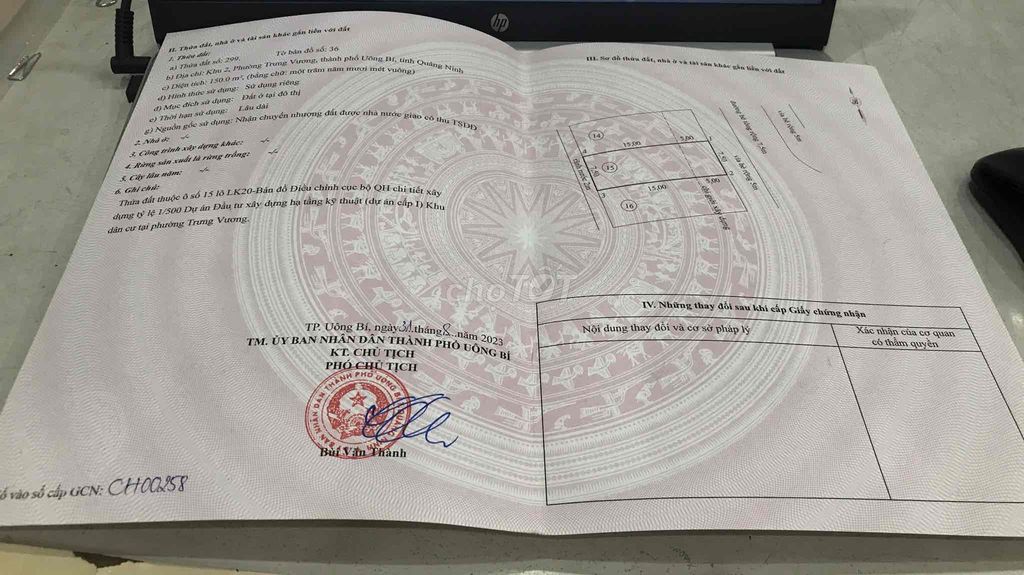 hp
II. Thửa đất, nhà ở và tài sản khác gắn liền với đất
1. Thửa đất:
a) Thửa đất số: 299, Tờ bản đồ số: 36
b) Địa chỉ: Khu 2, Phường Trưng Vương, thành phố Uông Bí, tỉnh Quảng Ninh
c) Diện tích: 150.0 m², (bằng chữ: một trăm năm mươi mét vuông)
d) Hình thức sử dụng: Sử dụng riêng
đ) Mục đích sử dụng: Đất ở tại đô thị
e) Thời hạn sử dụng: Lâu dài
g) Nguồn gốc sử dụng: Nhận chuyển nhượng đất được nhà nước giao có thu TSDĐ
2. Nhà ở: -/-
3. Công trình xây dựng khác: -/-
4. Rừng sản xuất là rừng trồng: -/-
5. Cây lâu năm: -/-
6. Ghi chú:
Thửa đất thuộc ô số 15 lô LK20-Bản đồ Điều chỉnh cục bộ QH chi tiết xây
dựng tỷ lệ 1/500 Dự án Đầu tư xây dựng hạ tầng kỹ thuật (dự án cấp I) Khu
dân cư tại phường Trưng Vương.
TP. Uông Bí, ngày 31 tháng 8 năm 2023
TM. ỦY BAN NHÂN DÂN THÀNH PHỐ UÔNG BÍ
KT. CHỦ TỊCH
PHÓ CHỦ TỊCH
Bùi Văn Thành
Số vào sổ cấp GCN: CH00258
III. Sơ đồ thửa đất, nhà ở và tài sản khác gắn liền với đất
14
15.00
5.00
1
4
7.50
15
7.50
2
3
15.00
5.00
16
rãnh nước 2m
chỉ giới xây dựng
vỉa hè rộng 5m
đường bê tông rộng 7,5m
vỉa hè rộng 5m
IV. Những thay đổi sau khi cấp Giấy chứng nhận
Nội dung thay đổi và cơ sở pháp lý
Xác nhận của cơ quan
có thẩm quyền
choTỐT